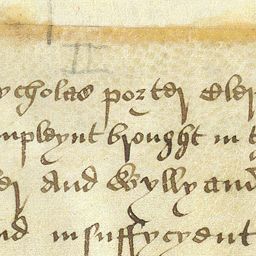 II
ycholas porter Cler
mpleynt brought in t
er and Wylly and
nd insuffycyent